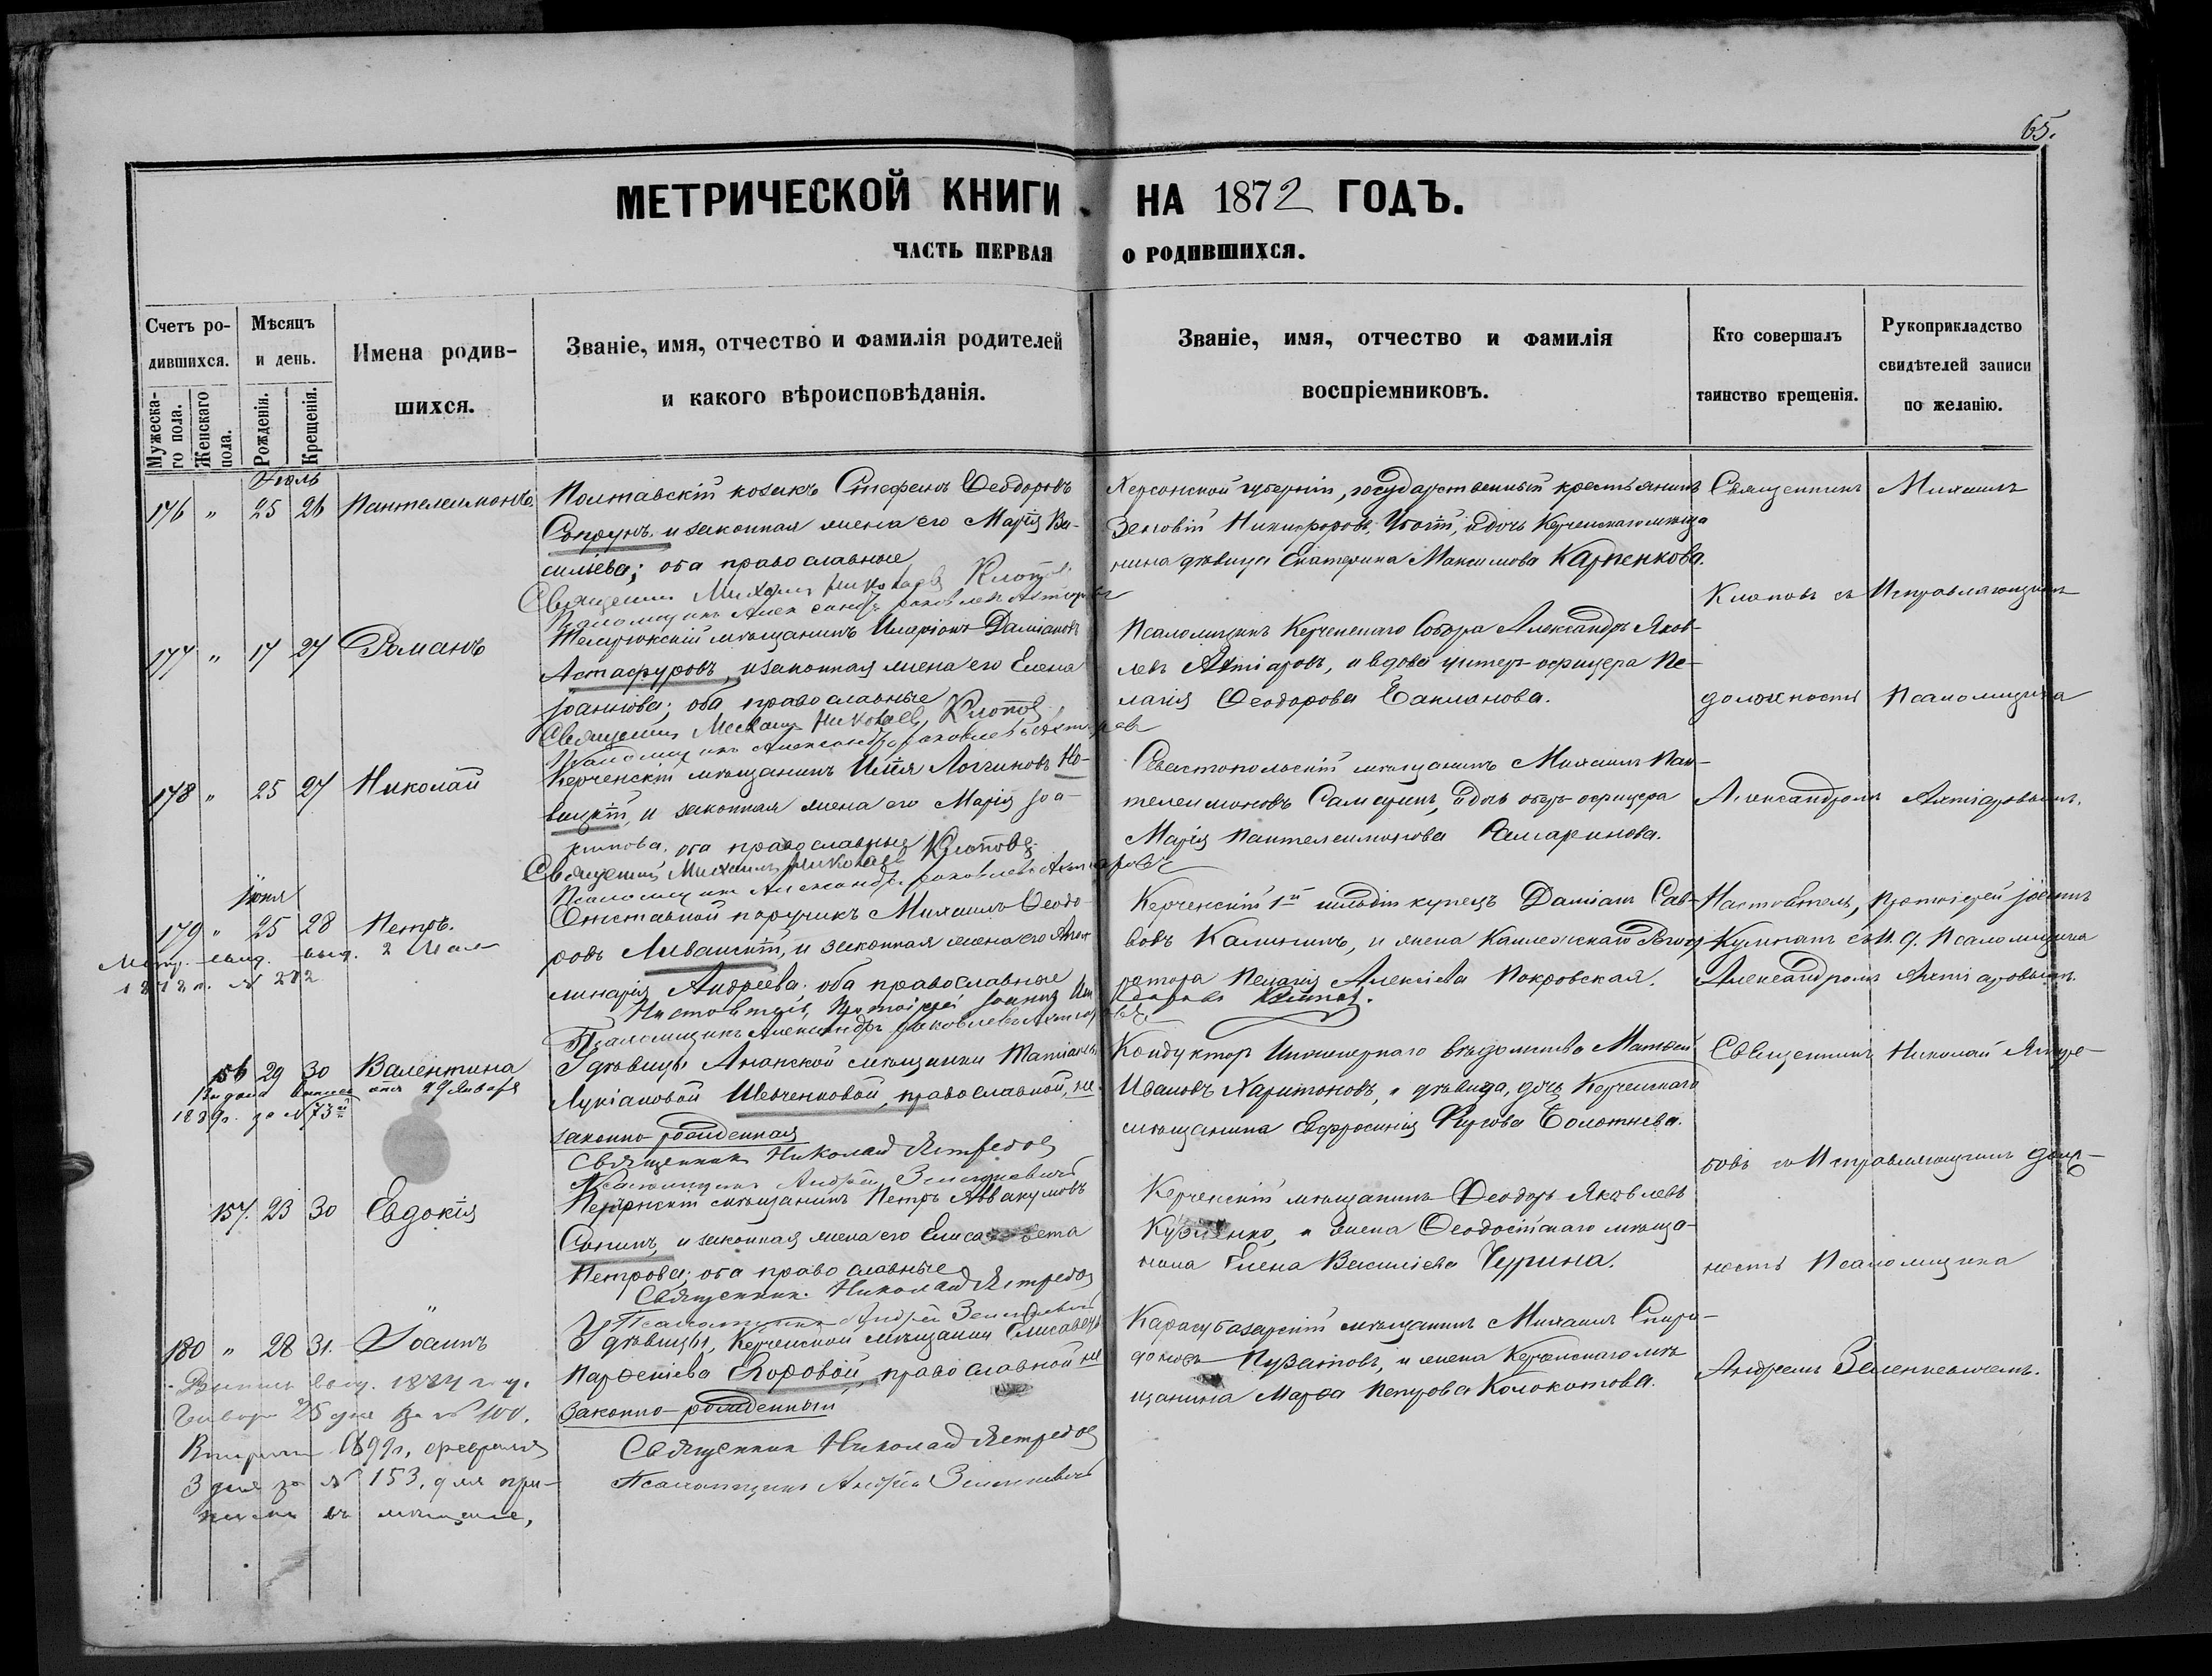 65.
МЕТРИЧЕСКОЙ КНИГИ НА 1872 ГОДЪ.
ЧАСТЬ ПЕРВАЯ О РОДИВШИХСЯ.
Счетъ ро-
дившихся.
Мужеска-
го пола.
Женскаго
пола.
Мѣсяцъ
и день.
Рожденія.
Крещенія.
Имена родив-
шихся.
Званіе, имя, отчество и фамилія родителей
и какого вѣроисповѣданія.
Званіе, имя, отчество и фамилія
воспріемниковъ.
Кто совершалъ
таинство крещенія.
Рукоприкладство
свидѣтелей записи
по желанію.
Іюль
176 " 25 26 Пантелеимонъ
Полтавскій козакъ Стефанъ Ѳеодоровъ
Сопрунъ и законная жена его Марія Ва-
силіева; оба православные
Священникъ Михаилъ Николаевъ Клоповъ
Псаломщикъ Александръ Яковлевъ Ахтіаровъ
Херсонской губерніи, государственный крестьянинъ
Зеновій Никифоровъ, и дочь Керченскаго мѣща
нина дѣвица Екатерина Максимова Карпенкова.
Священникъ Михаилъ
Клоповъ съ Исправляющимъ
177 " 17 27 Романъ
Темрюкскій мѣщанинъ Иларіонъ Даміановъ
Астафуровъ, и законная жена его Елена
Іоаннова; оба православные
Священникъ Михаилъ Николаевъ Клоповъ
Псаломщикъ Александръ Яковлевъ Ахтіаровъ
Псаломщикъ Керченскаго Собора Александръ Яков-
левъ Ахтіаровъ, и вдова унтеръ-офицера Пе-
лагія Ѳеодорова Бакланова.
должность Псаломщика
178 " 25 27 Николай
Керченскій мѣщанинъ Илія Логгиновъ Но-
вицкій, и законная жена его Марія Іоа-
кимова, оба православные
Священникъ Михаилъ Николаевъ Клоповъ
Псаломщикъ Александръ Яковлевъ Ахтіаровъ
Севастопольскій мѣщанинъ Михаилъ Пан-
телеимоновъ Самаринъ, и дочь оберъ-офицера
Марія Пантелеимонова Самаринова.
Александромъ Ахтіаровымъ.
Іюня
179 " 25 28 Петръ.
Метр. свид. выд. 2 Мая
№ 282
Отставной поручикъ Михаилъ Ѳеодо-
ровъ Ливанскій, и законная жена его Апол
линарія Андреева; оба православные
Настоятель, Протоіерей Іоаннъ
Псаломщикъ Александръ Яковлевъ Ахтіаровъ
Керченскій 1й гильдіи купецъ Даміанъ Сав-
вовъ Калининъ, и жена Коллежскаго Регист
ратора Пелагія Алексіева Покровская.
Настоятель, Протоіерей Іоаннъ
Кумпанъ съ И. д. Псаломщика
Александромъ Ахтіаровымъ.
156 29 30 Валентина
Выдана выпись 29 Января
1889г. за №73й
У дѣвицы Ананской мѣщанки Татіаны
Лукіановой Шевченковой, православной, не-
законно-рожденная
Священникъ Николай Ястребовъ
Псаломщикъ Андрей Зеленкевичъ
Кондукторъ Инженернаго вѣдомства Матѳей
Ивановъ Харитоновъ, и дѣвица, дочь Керченскаго
мѣщанина Евфросинія Болотнева.
Священникъ Николай Ястре-
бовъ съ Исправляющимъ долж-
157. 23 30 Евдокія
мѣщанинъ Петръ Аввакумовъ
Сонинъ, и законная жена его Елисавета
Петрова; оба православные
Священникъ Николай Ястребовъ
Псаломщикъ Андрей Зеленкевичъ
Керченскій мѣщанинъ Ѳеодоръ Яковлевъ
Кузменко, и жена Ѳеодосійскаго мѣща-
нина Елена Василіева Чурина.
ность Псаломщика
180 " 28 31. Іоаннъ
Выпись выд. 1884 году.
Января 25 дня за № 100.
Вторично 1899г. февраля
3 дня за № 153, для при-
писки въ мѣщане,
У дѣвицы, Керченской мѣщанки Елисаветы
Парѳеніева Хоровой, православной не
законно-рожденный
Священникъ Николай Ястребовъ
Псаломщикъ Андрей Зеленкевичъ
Карасубазарскій мѣщанинъ Михаилъ Спири-
доновъ Пузановъ, и жена Керченскаго мѣ
щанина Марѳа Петрова Колокотова.
Андреемъ Зеленкевичемъ.